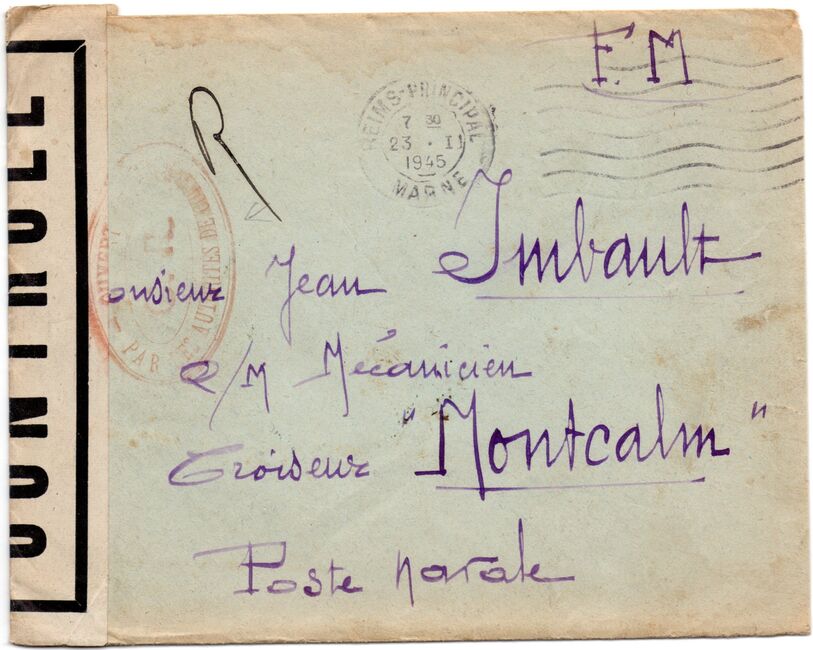 F.M
REIMS-PRINCIPAL
7 30
23 · II
1945
MARNE
R
CONTROLE
OUVERT
PAR
AUTORITES DE
onsieur Jean Imbault
Q/M Mécanicien
Croiseur "Montcalm"
Poste navale